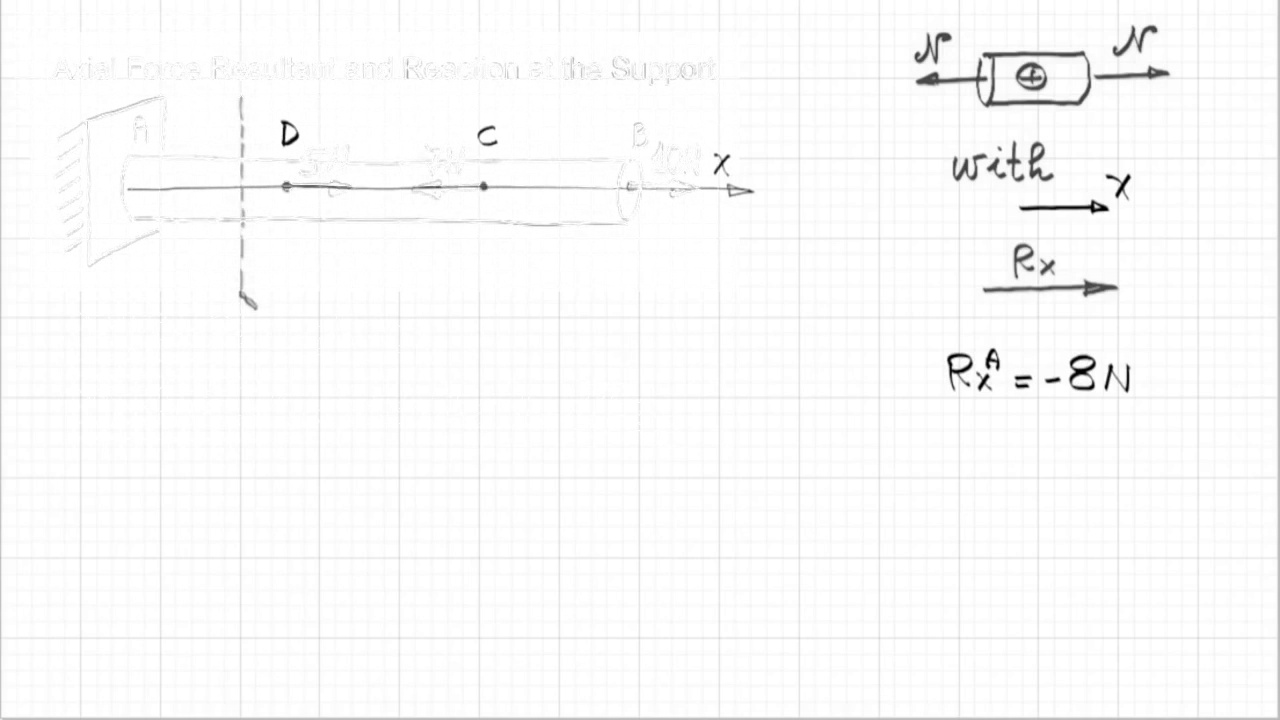 Axial Force Resultant and Reaction at the Support
A D C B
5N 7N 10N X
N N
with
X
Rx
RxA = -8N